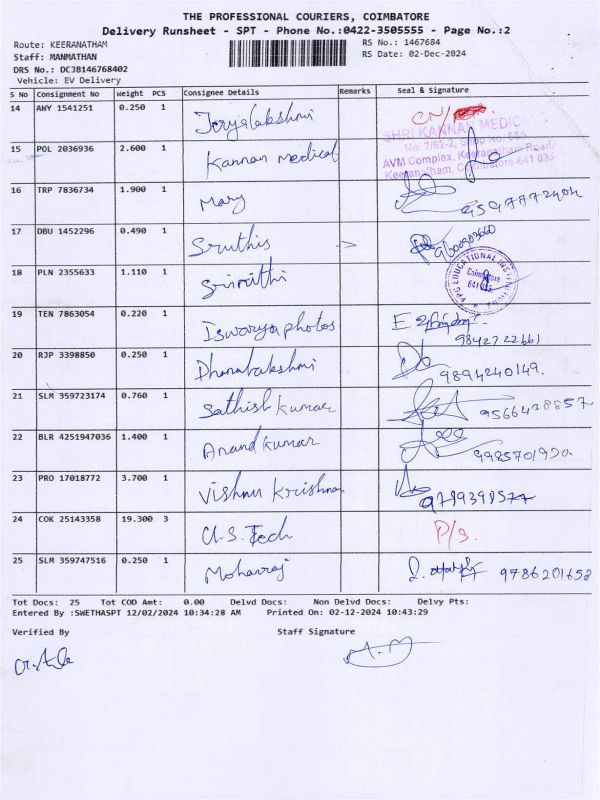 THE PROFESSIONAL COURIERS, COIMBATORE
Delivery Runsheet - SPT - Phone No.:0422-3505555 - Page No.:2
Route: KEERANATHAM RS No.: 1467684
Staff: MANMATHAN RS Date: 02-Dec-2024
DRS No.: DCJB146768402
Vehicle: EV Delivery
S No Consignment No Weight PCS Consignee Details Remarks Seal & Signature
14 AWY 1541251 0.250 1 CN/
SHRI KANNAN MEDIC
15 POL 2036936 2.600 1 Kannan Medical
AVM Complex, Keeranatham Road,
Keeranatham, Coimbatore-641 035
16 TRP 7836734 1.900 1 Mary 9597772404
17 DBU 1452296 0.490 1 Sruthis
18 PLN 2355633 1.110 1 PPG EDUCATIONAL Coimbatore
19 TEN 7863054 0.220 1 Iswarya photos 9842722661
20 RJP 3398850 0.250 1 Dhanalakshmi 9894240149.
21 SLM 359723174 0.760 1 Sathish kumar
22 BLR 4251947036 1.400 1 Anand kumar
23 PRO 17018772 3.700 1 Vishnu Krishna
24 COK 25143358 19.300 3 U.S. Tech P/s.
25 SLM 359747516 0.250 1 Mohanraj 9786201658
Tot Docs: 25 Tot COD Amt: 0.00 Delvd Docs: Non Delvd Docs: Delvy Pts:
Entered By :SWETHASPT 12/02/2024 10:34:28 AM Printed On: 02-12-2024 10:43:29
Verified By Staff Signature
A.M